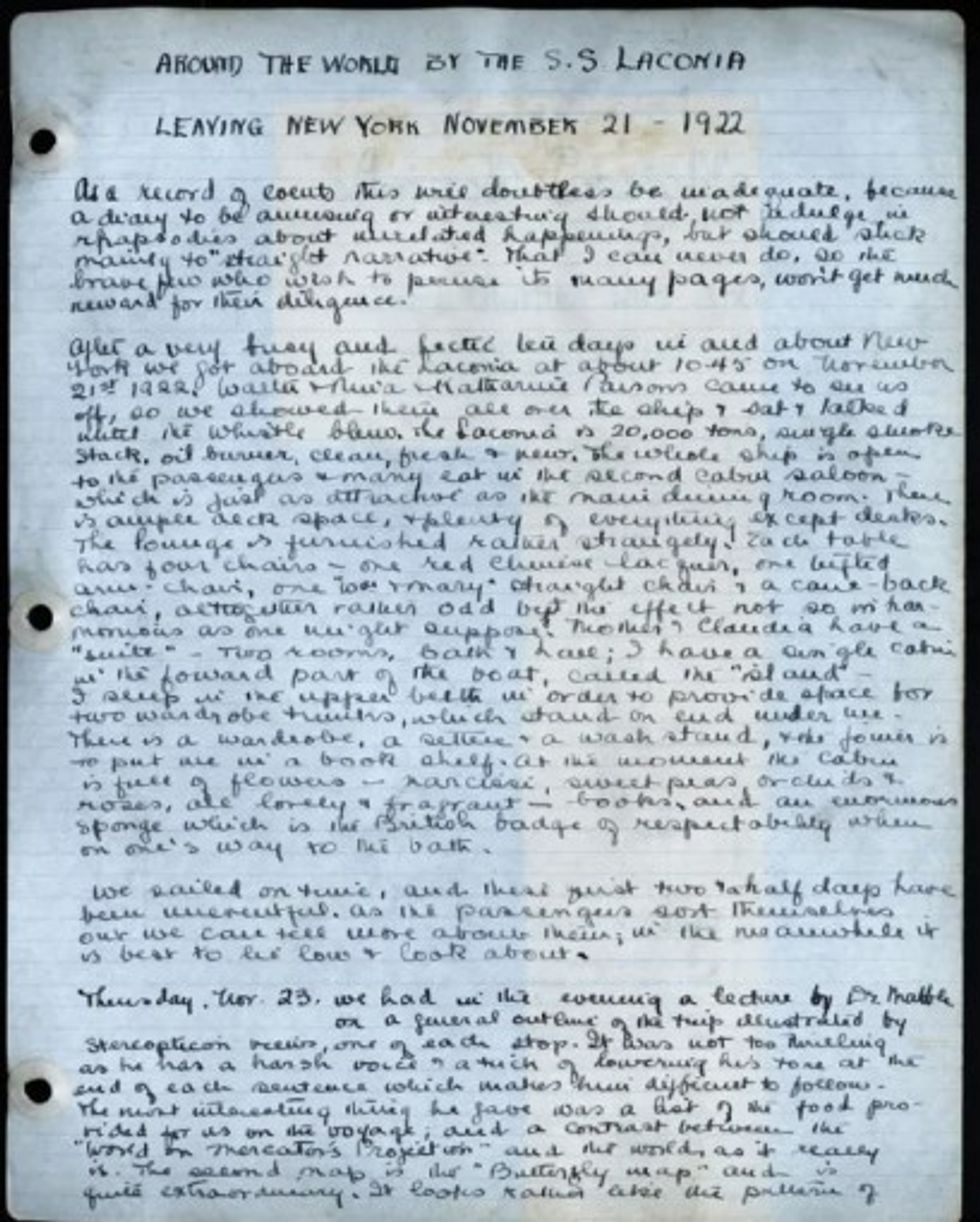 AROUND THE WORLD BY THE S.S. LACONIA
LEAVING NEW YORK NOVEMBER 21 - 1922
As a record of events this will doubtless be inadequate, because
a diary to be amusing or interesting should not indulge in
rhapsodies about unrelated happenings, but should stick
mainly to "straight narrative". That I can never do, so the
brave few who wish to peruse its many pages, won't get much
reward for their diligence.
After a very busy and hectic ten days in and about New
York we got aboard the Laconia at about 10.45 on November
21st 1922. Walter & & Katharine Parsons came to see us
off, so we showed them all over the ship & sat & talked
until the whistle blew. The Laconia is 20,000 tons, single smoke
stack, oil burner, clean, fresh & new. The whole ship is open
to the passengers & many eat in the second cabin saloon -
which is just as attractive as the main dining room. There
is ample deck space, & plenty of everything except desks.
The lounge is furnished rather strangely! Each table
has four chairs - one red Chinese lacquer, one tufted
arm-chair, one "Wm & Mary" straight chair & a cane-back
chair, altogether rather odd but the effect not so inhar-
monious as one might suppose. Mother & Claudia have a
"suite" - two rooms, bath & hall; I have a single cabin
in the foward part of the boat, called the "island" -
I sleep in the upper berth in order to provide space for
two wardrobe trunks, which stand on end under me.
There is a wardrobe, a settee & a wash stand, & the joiner is
to put me in a book shelf. At the moment the cabin
is full of flowers - narcissi, sweet peas, orchids &
roses, all lovely & fragrant - books, and an enormous
sponge which is the British badge of respectability when
on one's way to the bath.
We sailed on time, and these first two & a half days have
been uneventful. As the passengers sort themselves
out we can tell more about them; in the meanwhile it
is best to lie low & look about.
Thursday. Nov. 23. We had in the evening a lecture by Dr.
on a general outline of the trip illustrated by
stereopticon views, one of each stop. It was not too thrilling
as he has a harsh voice & a trick of lowering his tone at the
end of each sentence which makes him difficult to follow.
The most interesting thing he gave was a list of the food pro-
vided for us on the voyage; and a contrast between the
"World on Mercator's Projection" and the world as it really
is. The second map is the "Butterfly map" and is
quite extraordinary. It looks rather like the pattern of